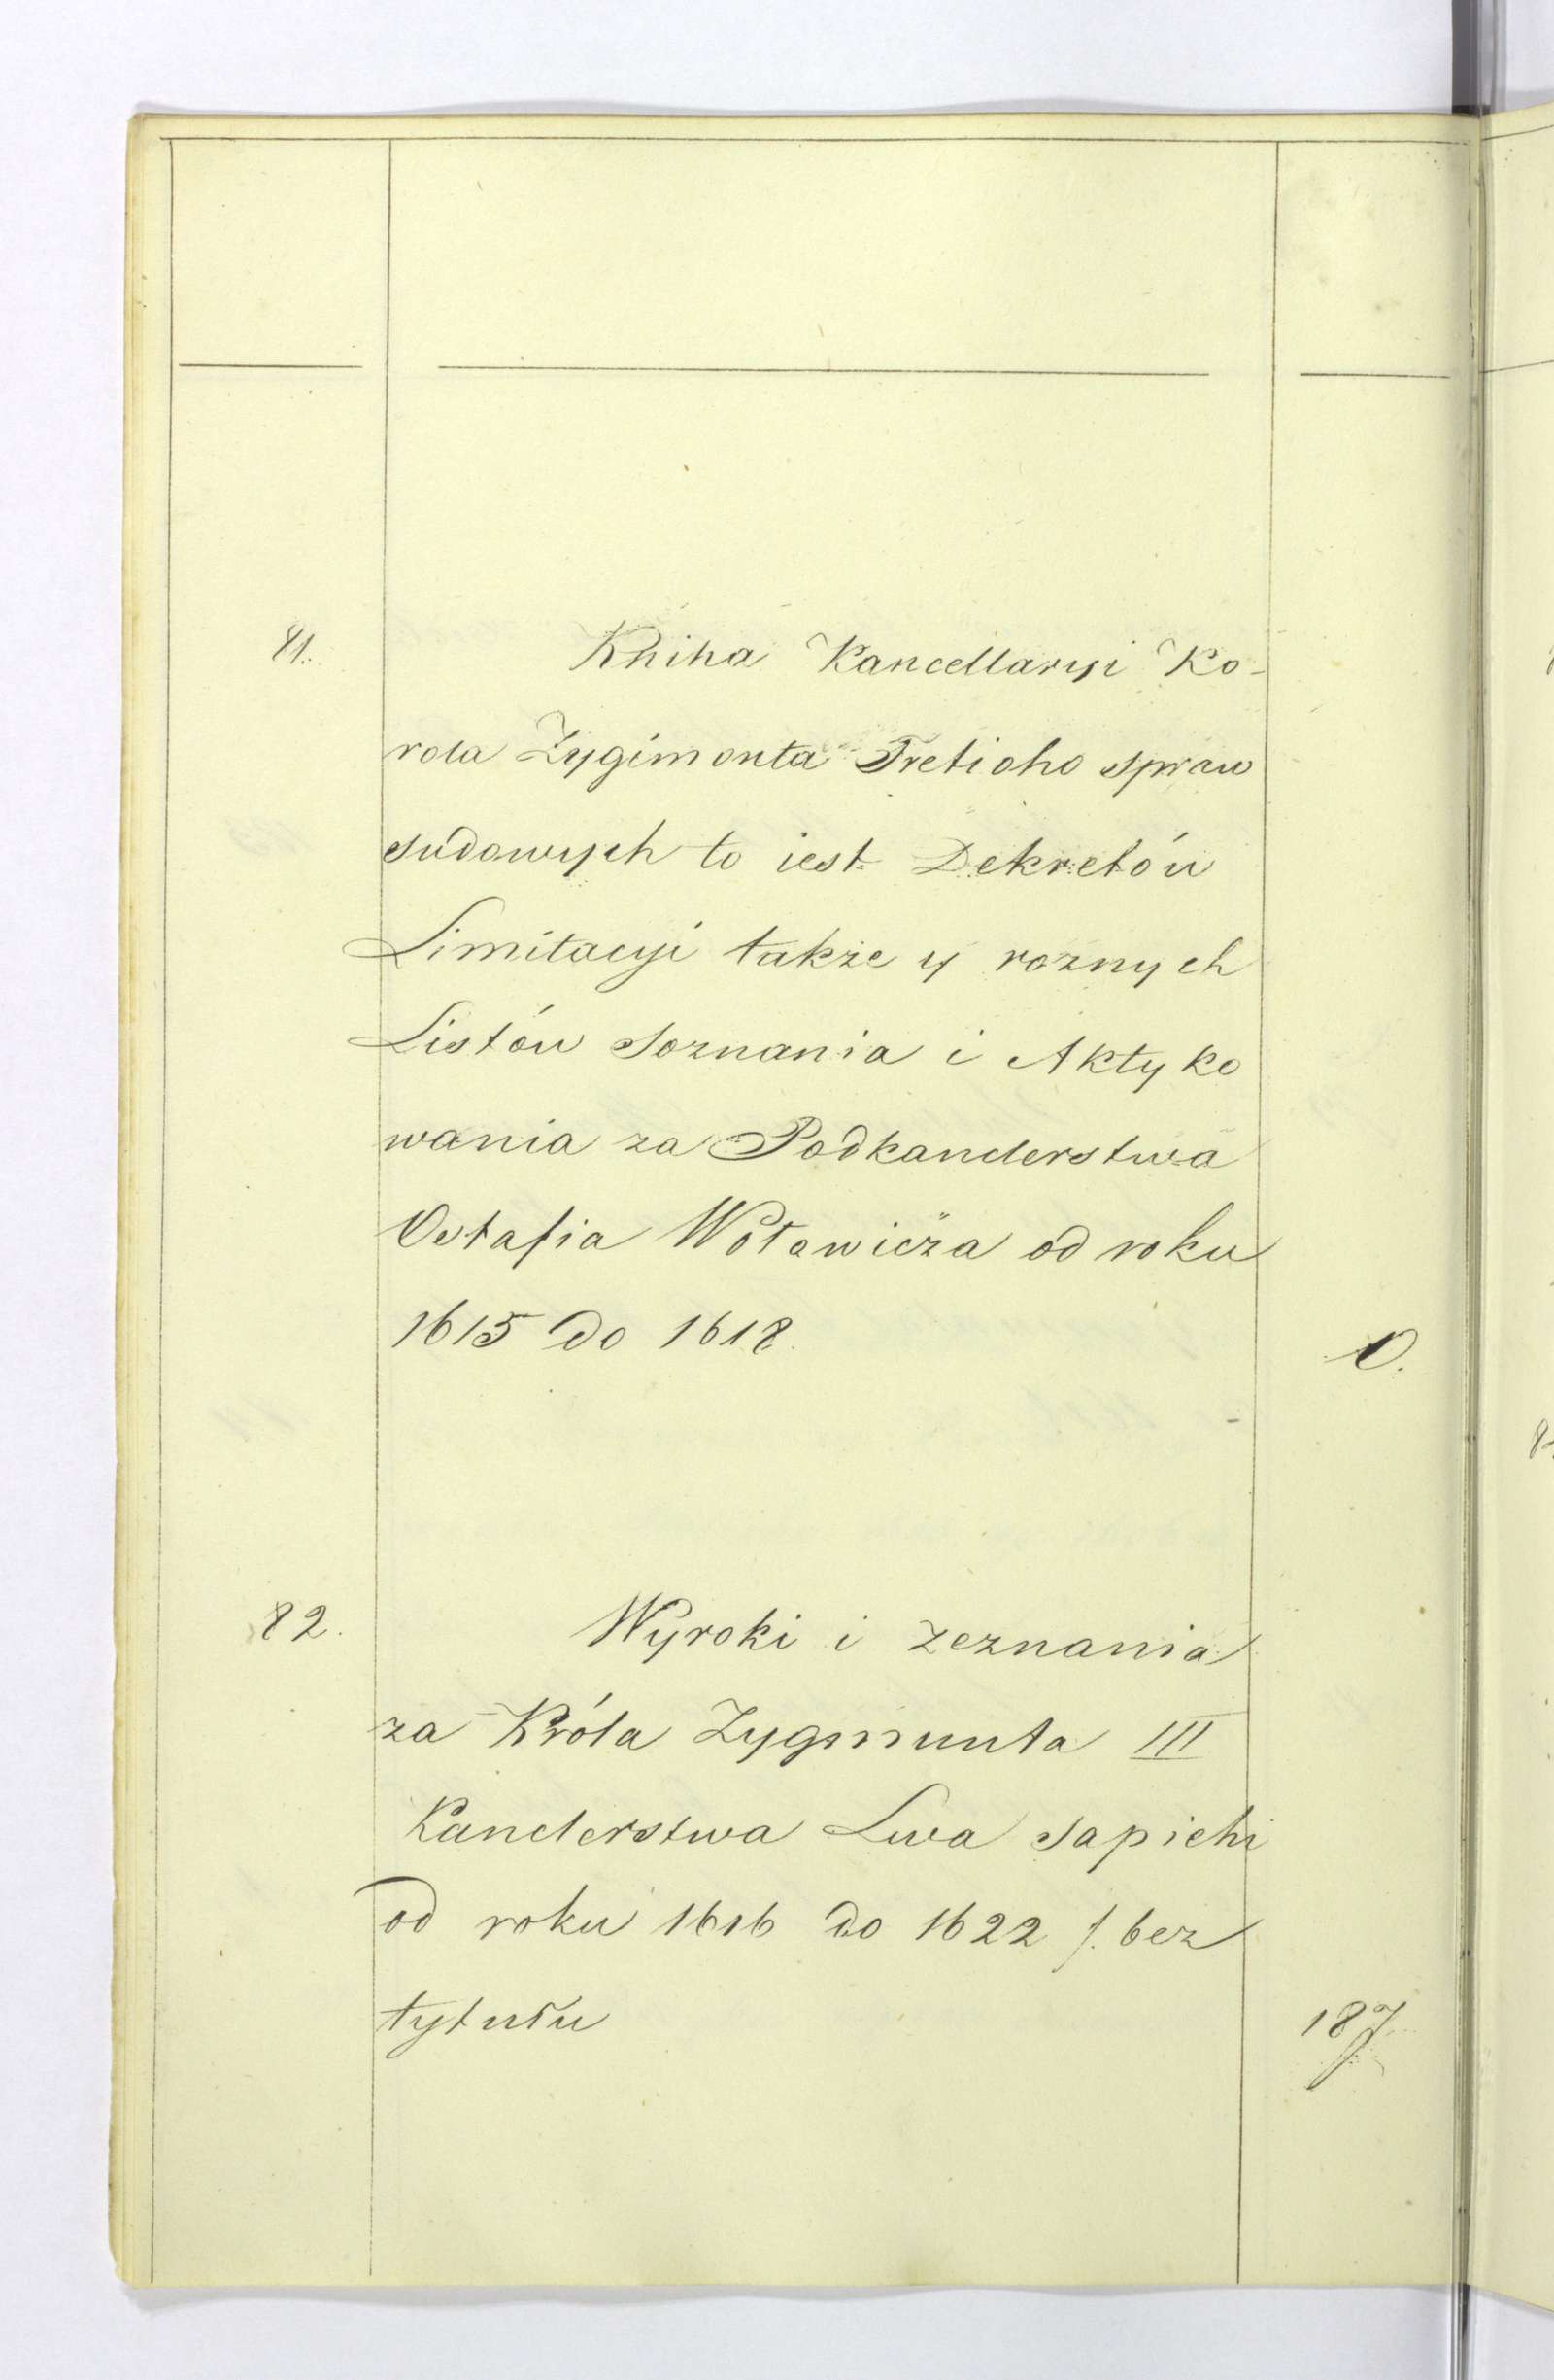 81. Kniha Kancellaryi Ko-
rola Zygimonta Tretioho spraw
sudowych to iest Dekretów
Limitacyi także y roznych
Listów Soznania i Aktyko
wania za Podkanclerstwa
Ostafia Wołowicza od roku
1615 do 1618. O.
82. Wyroki i zeznania
za Króla Zygmunta III
Kanclerstwa Lwa Sapiehi
od roku 1616 do 1622 /. bez
tytułu 187